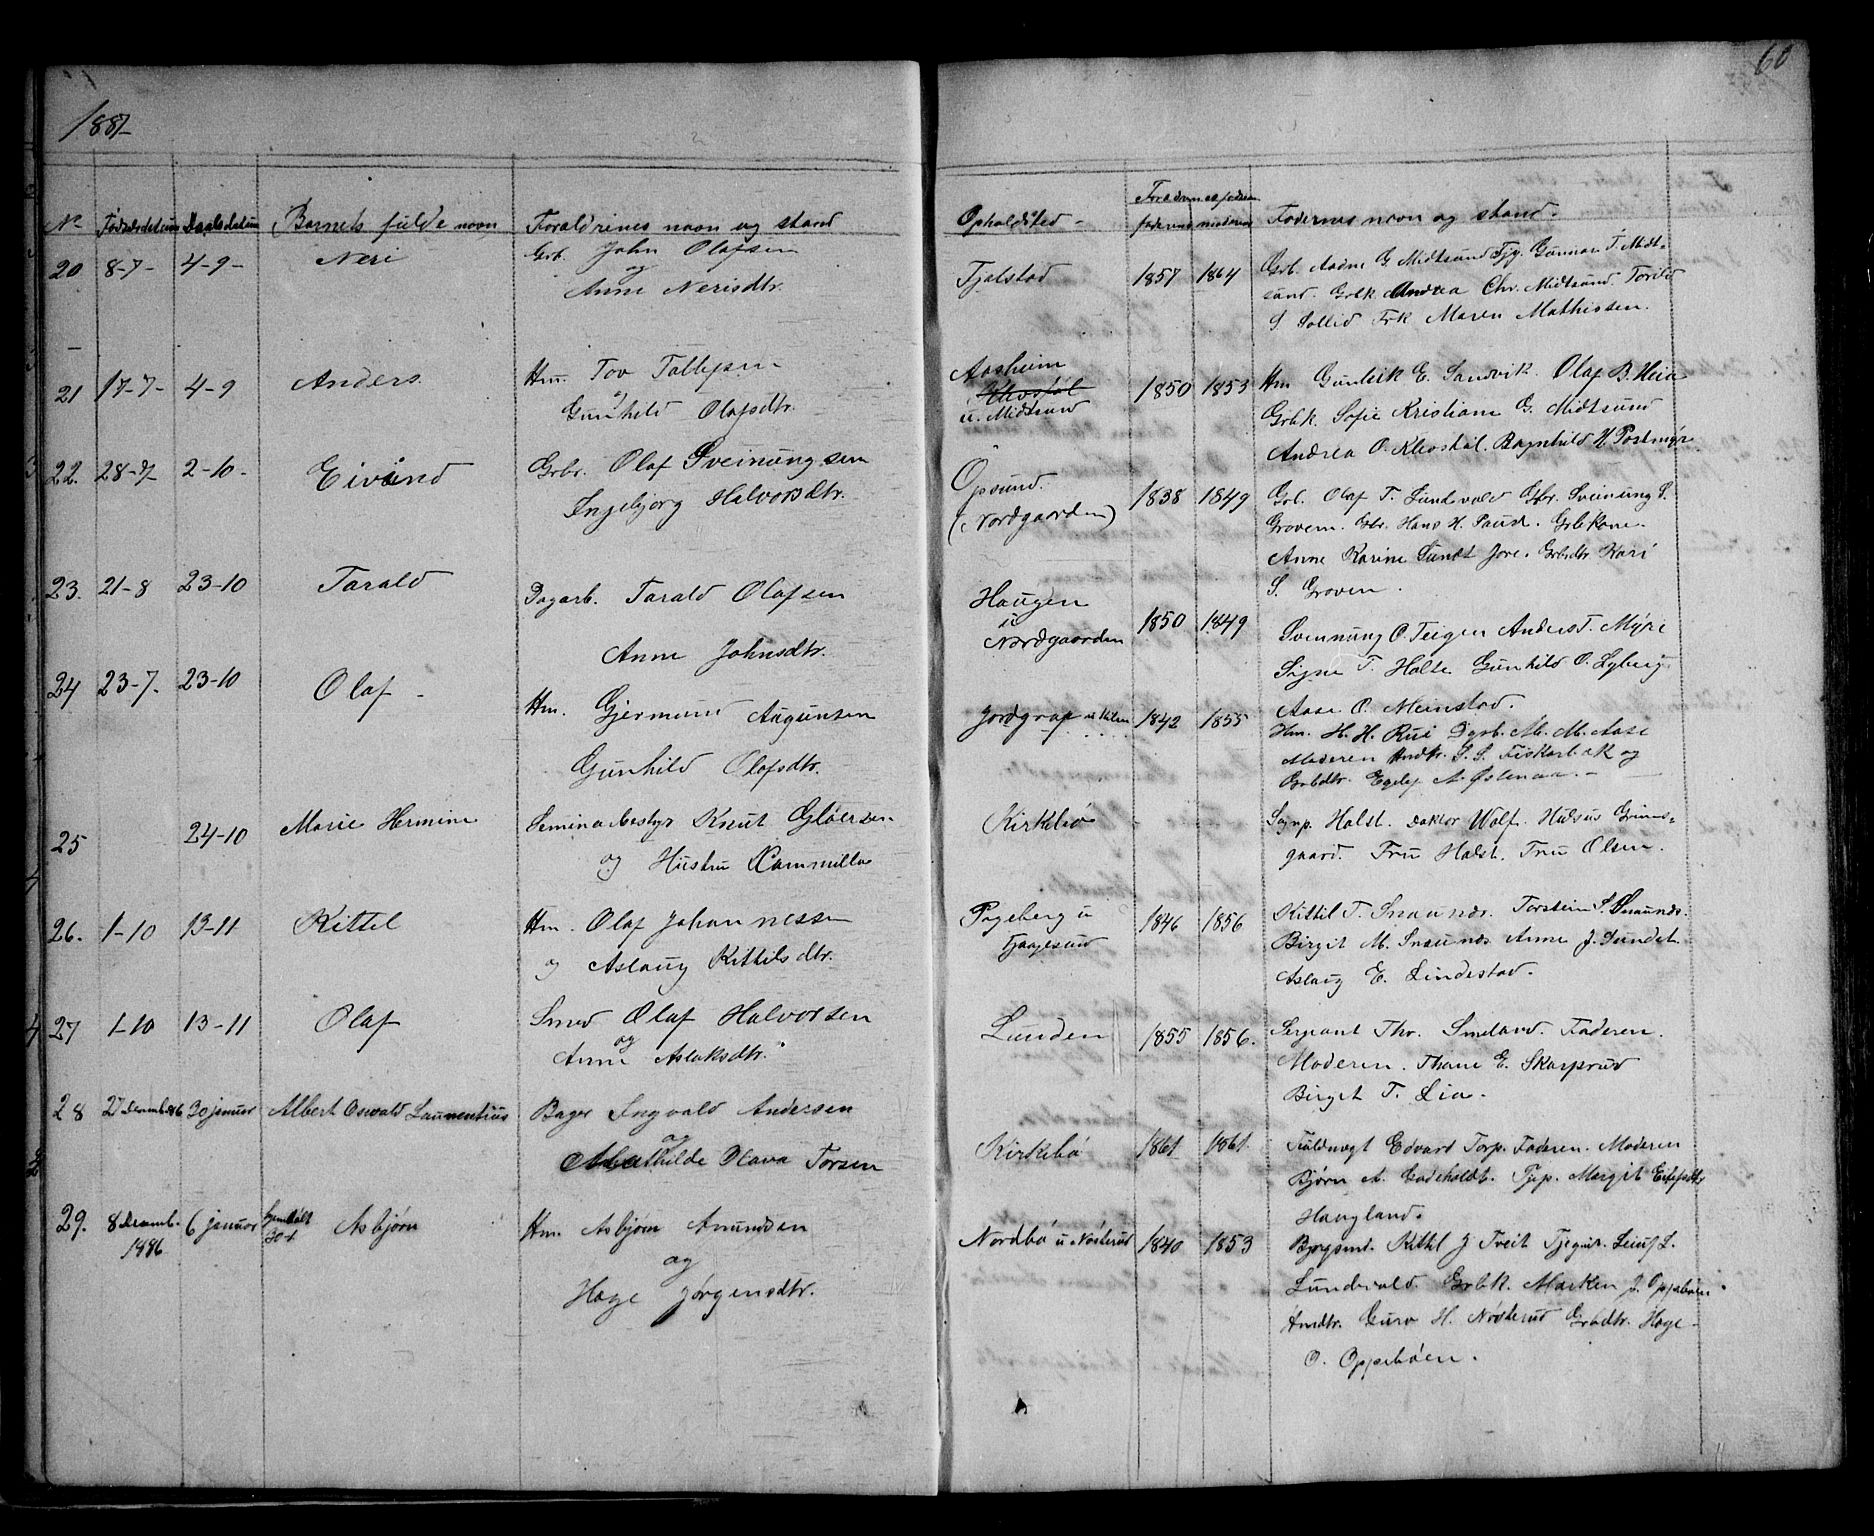 1887
60
No Fødselsdatum Daabsdatum Barnets fulde navn Forældrenes navn og stand
Opholdsted - Forældrenes fødeaar
faderens moderens
Faddernes navn og stand.
20 8-7- 4-9- Neri Grb. John Olafsen
og
Anne Nerisdtr.
Fjalstad 1857 1864 Grb. Aadne G Midtsund Tjg. Gunnar T. Midt-
sund. Grbk Andrea Chr. Midtsund. Torild
S. Sollid Frk Maren Mathissen.
21 17-7- 4-9 Anders. Hm. Tov Tollefsen
og
Gunhild Olafsdtr.
Aasheim
Klevstøl
u. Midtsund
1850 1853 Hm Gunleik E. Sandvik. Olaf B. Heia
Grbk. Sofie Kristiane G. Midtsund
Andrea O. Klevstøl. Ragnhild H. Postmyr
22. 28-7- 2-10- Eivind Grbr. Olaf Sveinungsen
Ingebjørg Halvorsdtr.
Opsund.
(Nordgaarden)
1838 1849 Grb. Olaf T. Lundevald Gbr. Sveinung S.
Groven. Gbr. Hans H. Paust. Grbkone.
Anne Karine Sundt Jore. Grbdtr Kari
S. Groven.
23. 21-8 23-10 Tarald Dagarb. Tarald Olafsen
Anne Johnsdtr.
Haugen
u
Nordgaarden
1850 1849 Svennung O. Teigen Anders T. Myre
Signe T. Holte Gunhild O. Lyberg.
Aase O. Meinstad.
24 23-7. 23-10 Olaf - Hm. Gjermund Augunsen
Gunhild Olafsdtr.
Jordgrav u Kilen 1842 1855 Hm. H. H. Rui Dgrb. M. M. Aase
Moderen Hmdtr. S. S. Fiskarbæk og
Grbdtr. Egelef A. Østenaa. -
25 24-10 Marie Hermine Seminariebestyr Knut Gløersen
og Hustru Kammilla
Kirkebø - - Sognp. Holst. Doktor Wolf. Grims-
gaard. Fru Holst. Fru Olsen.
26. 1-10 13-11 Kittel Hm. Olaf Johannessen
og Aslaug Kittilsdtr.
Fjaagesund
1846 1856 Kittil T. Snaunds. Torstein S. Snaunds.
Birgit M. Snaunds Anne J. Sundet.
Aslaug E. Lindestad.
27 1-10 13-11 Olaf Smed Olaf Halvorsen
og
Anne Aslaksdtr.
Lunden 1855 1856. Sergeant Thr. Smeland. Faderen.
Moderen. Thone E. Skarprud
Birget T. Lia.
28 27 Decemb 86 30 januar Albert Oswald Laurentius Bager Ingvald Andersen
og
Mathilde Olava Torsen
Kirkebø 1861 1861. Fuldmægt Edvard Torp. Faderen. Moderen
Bjørn A. Godeholdt. Tjp. Margit Eilefsdtr
Haugland.
29. 8 Decemb. 6 januar Asbjørn Hm. Asbjørn Amundsen
1886
og
Hage Jørgensdtr.
Nordbø u. Nøsterud 1840 1853 Bygsmd. Kittil J Tveit Tjegut. Leiuf L.
Lundevald. Grbk. Marken J. Oppebøen.
Hmdtr. Guro H. Nøsterud Grbdtr. Hage
O. Oppebøen.